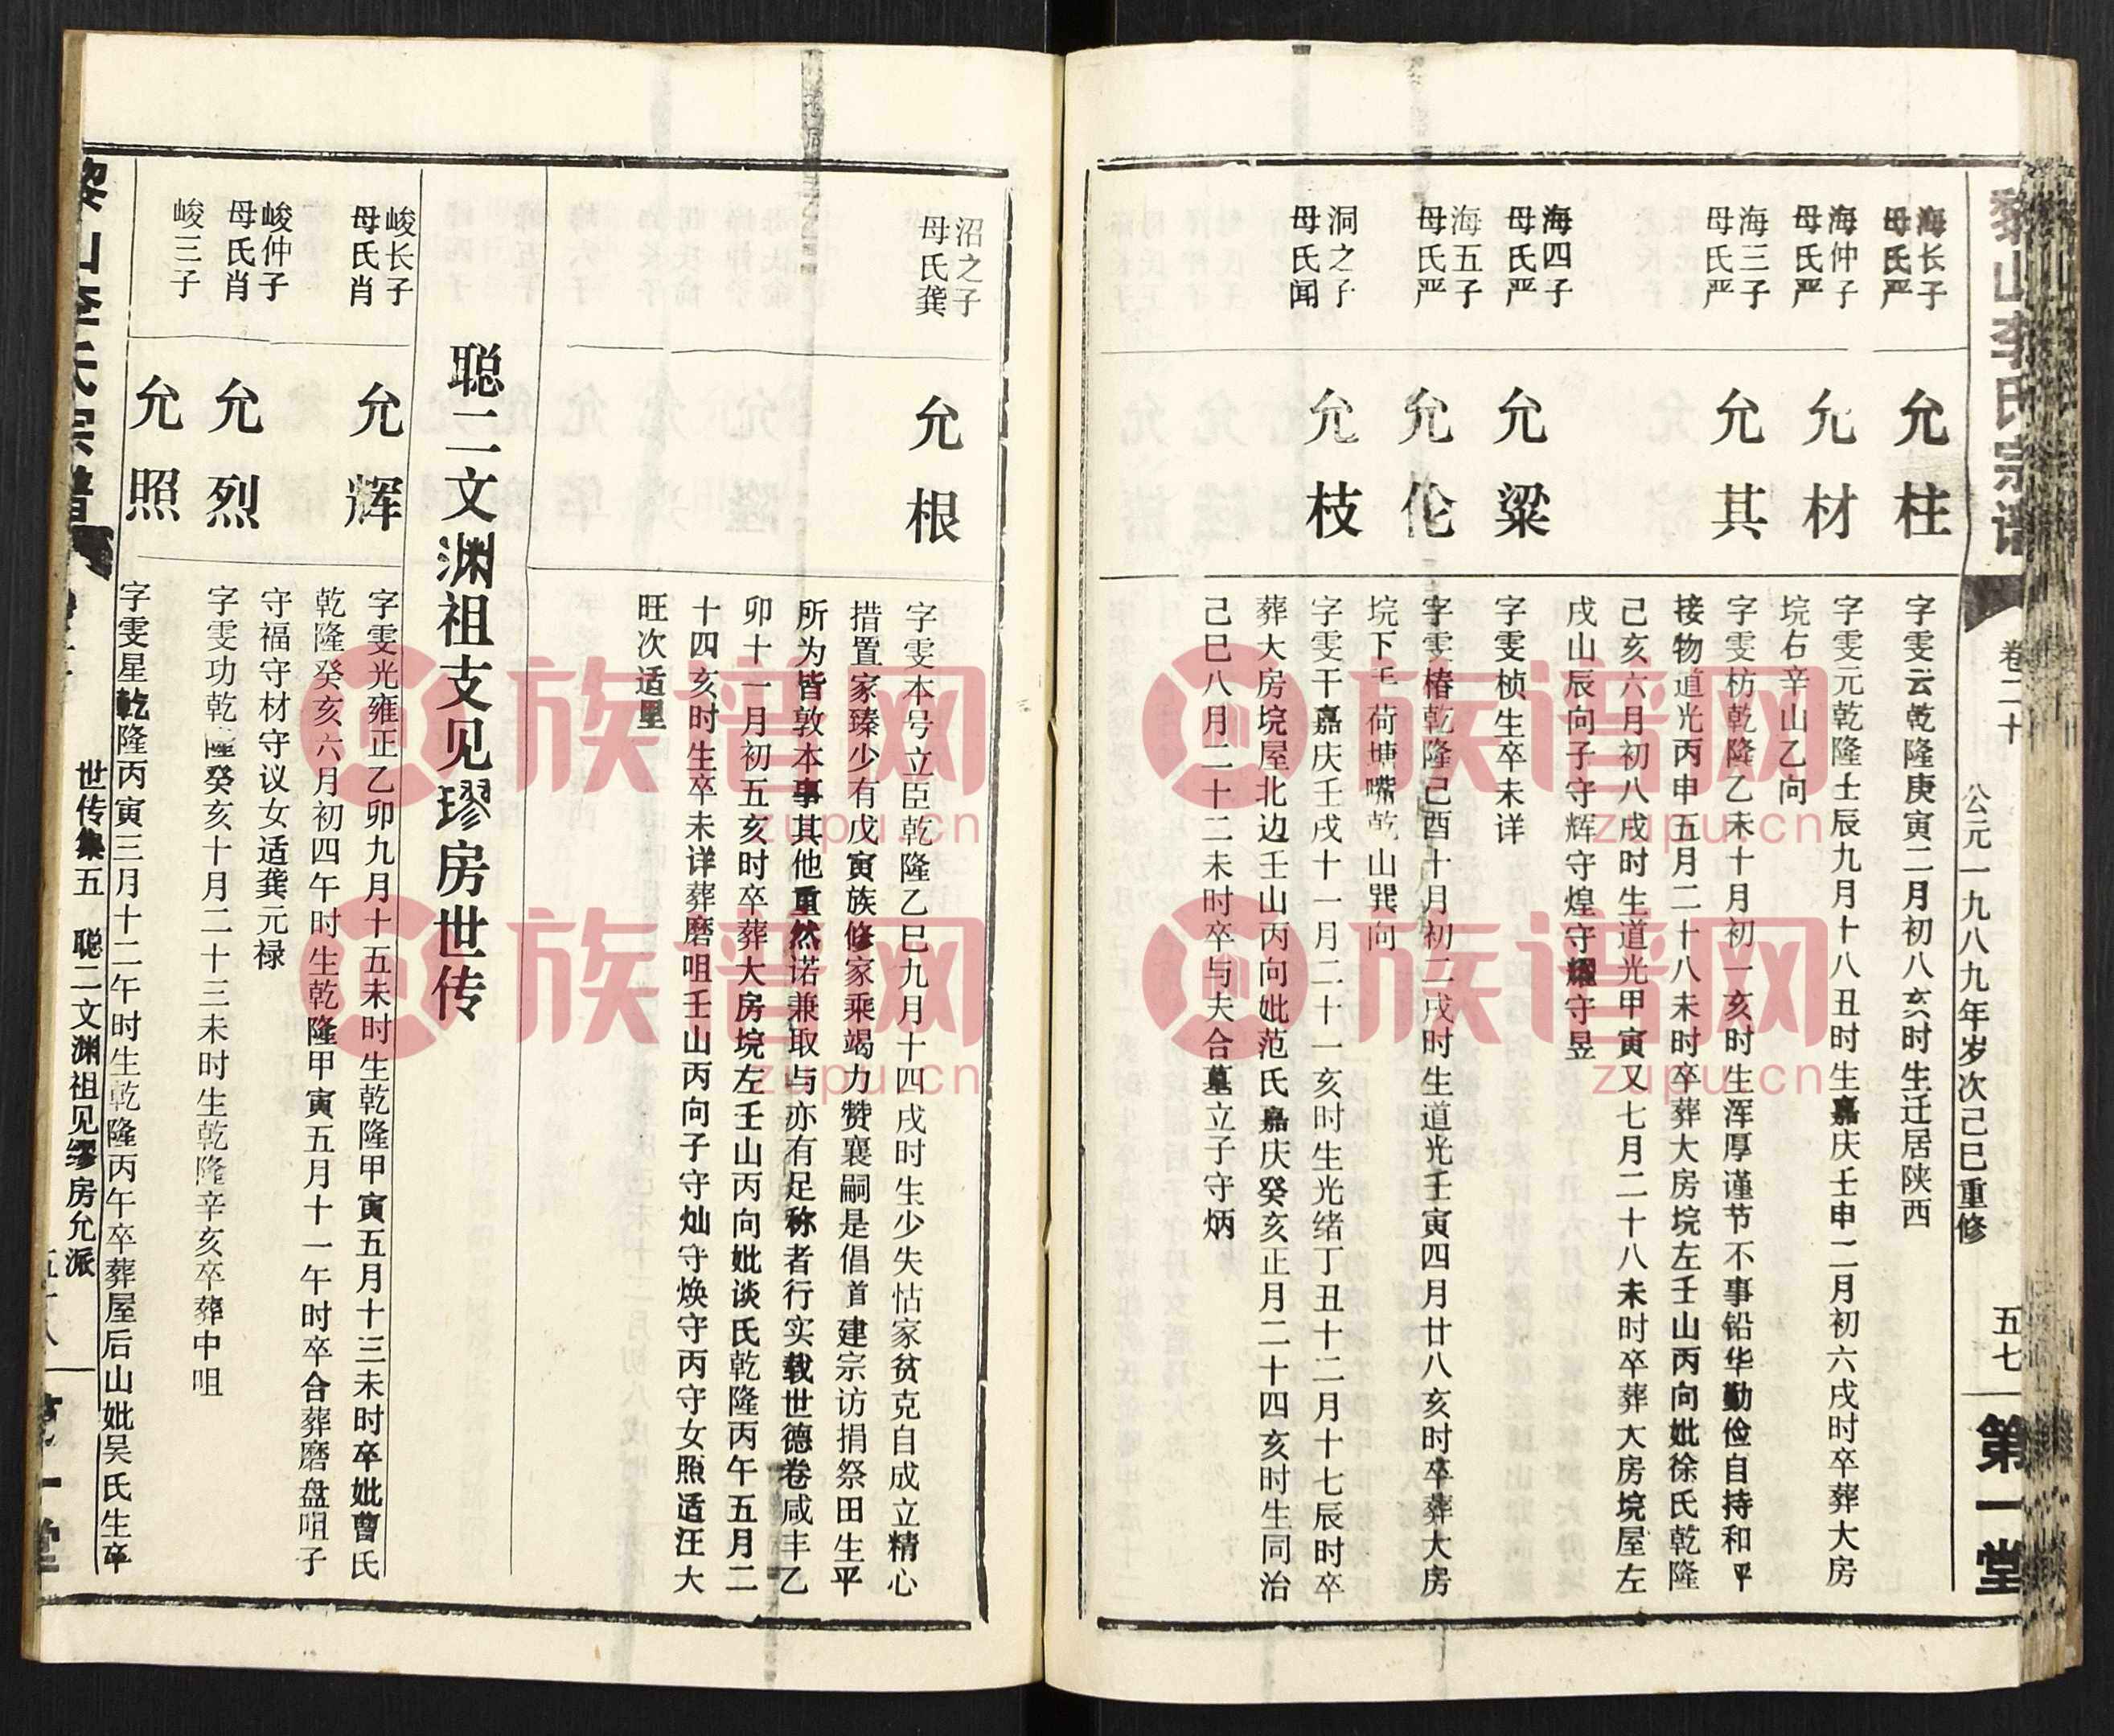 黎山李氏宗谱
卷二十
公元一九八九年岁次己巳重修
五七
第一堂
海长子
母氏严
允柱
字雯云乾隆庚寅二月初八亥时生迁居陕西
海仲子
母氏严
允材
字雯元乾隆壬辰九月十八丑时生嘉庆壬申二月初六戌时卒葬大房
垸右辛山乙向
海三子
母氏严
允其
字雯枋乾隆乙未十月初一亥时生浑厚谨节不事铅华勤俭自持和平
接物道光丙申五月二十八未时卒葬大房垸左壬山丙向妣徐氏乾隆
己亥六月初八戌时生道光甲寅又七月二十八未时卒葬大房垸屋左
戌山辰向子守辉守煌守耀守昱
海四子
母氏严
允粱
字雯桢生卒未详
海五子
母氏严
允伦
字雯椿乾隆己酉十月初二戌时生道光壬寅四月廿八亥时卒葬大房
垸下手荷塘嘴乾山巽向
洞之子
母氏闻
允枝
字雯干嘉庆壬戌十一月二十一亥时生光绪丁丑十二月十七辰时卒
葬大房垸屋北边壬山丙向妣范氏嘉庆癸亥正月二十四亥时生同治
己巳八月二十二未时卒与夫合墓立子守炳
沼之子
母氏龚
允根
字雯本号立臣乾隆乙巳九月十四戌时生少失怙家贫克自成立精心
措置家臻少有戊寅族修家乘竭力赞襄嗣是倡首建宗访捐祭田生平
所为皆敦本事其他重然诺兼取与亦有足称者行实载世德卷咸丰乙
卯十一月初五亥时卒葬大房垸左壬山丙向妣谈氏乾隆丙午五月二
十四亥时生卒未详葬磨咀壬山丙向子守灿守焕守丙守女照适汪大
旺次适里
聪二文渊祖支见璆房世传
峻长子
母氏肖
允辉
字雯光雍正乙卯九月十五未时生乾隆甲寅五月十三未时卒妣曹氏
乾隆癸亥六月初四午时生乾隆甲寅五月十一午时卒合葬磨盘咀子
守福守材守议女适龚元禄
峻仲子
母氏肖
允烈
字雯功乾隆癸亥十月二十三未时生乾隆辛亥卒葬中咀
峻三子
允照
字雯星乾隆丙寅三月十二午时生乾隆丙午卒葬屋后山妣吴氏生卒
黎山李氏宗谱
世传集五 聪二文渊祖见缪房允派
五十八
第一堂
族谱网
zupu.cn
族谱网
zupu.cn
族谱网
zupu.cn
族谱网
zupu.cn